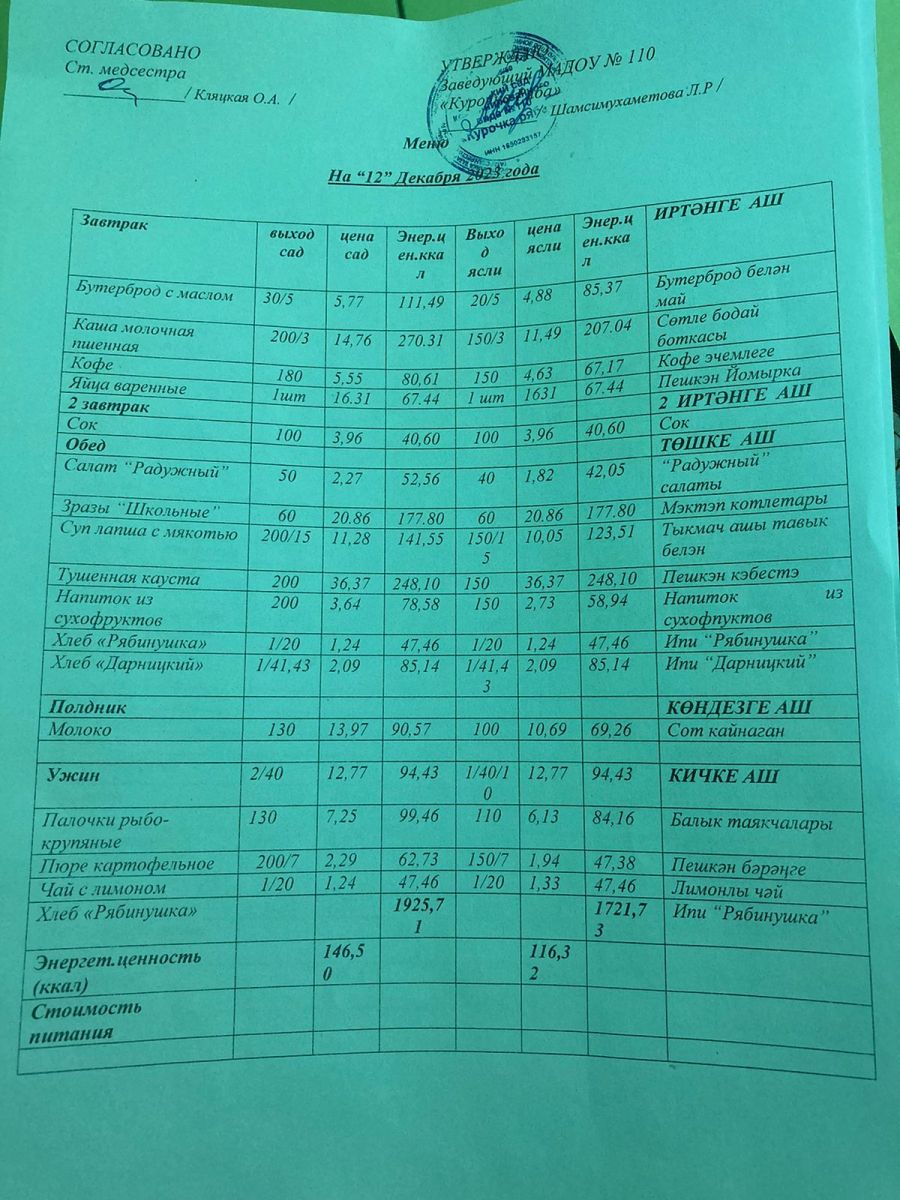 СОГЛАСОВАНО
Ст. медсестра
/ Кляцкая О.А. /
УТВЕРЖДАЮ
Заведующий МАДОУ № 110
«Курочка ряба»
/ Шамсимухаметова Л.Р /
«Курочка ряба»
ИНН 1650283157
Меню
На “12” Декабря 2023 года
Завтрак выход сад цена сад Энер.цен.ккал Выход ясли цена ясли Энер.цен.ккал ИРТӘНГЕ АШ
Бутерброд с маслом 30/5 5,77 111,49 20/5 4,88 85,37 Бутерброд белән май
Каша молочная пшенная 200/3 14,76 270.31 150/3 11,49 207.04 Сөтле бодай боткасы
Кофе 180 5,55 80,61 150 4,63 67,17 Кофе эчемлеге
Яйца варенные 1шт 16.31 67.44 1 шт 1631 67.44 Пешкэн Йомырка
2 завтрак 2 ИРТӘНГЕ АШ
Сок 100 3,96 40,60 100 3,96 40,60 Сок
Обед ТӨШКЕ АШ
Салат “Радужный” 50 2,27 52,56 40 1,82 42,05 “Радужный” салаты
Зразы “Школьные” 60 20.86 177.80 60 20.86 177.80 Мэктэп котлетары
Суп лапша с мякотью 200/15 11,28 141,55 150/15 10,05 123,51 Тыкмач ашы тавык белэн
Тушенная кауста 200 36,37 248,10 150 36,37 248,10 Пешкэн кэбестэ
Напиток из сухофруктов 200 3,64 78,58 150 2,73 58,94 Напиток из сухофпуктов
Хлеб «Рябинушка» 1/20 1,24 47,46 1/20 1,24 47,46 Ипи “Рябинушка”
Хлеб «Дарницкий» 1/41,43 2,09 85,14 1/41,43 2,09 85,14 Ипи “Дарницкий”
Полдник КӨНДЕЗГЕ АШ
Молоко 130 13,97 90,57 100 10,69 69,26 Сот кайнаган
Ужин 2/40 12,77 94,43 1/40/10 12,77 94,43 КИЧКЕ АШ
Палочки рыбо-крупяные 130 7,25 99,46 110 6,13 84,16 Балык таякчалары
Пюре картофельное 200/7 2,29 62,73 150/7 1,94 47,38 Пешкән бәрәңге
Чай с лимоном 1/20 1,24 47,46 1/20 1,33 47,46 Лимонлы чәй
Хлеб «Рябинушка» 1925,71 1721,73 Ипи “Рябинушка”
Энергет.ценность (ккал) 146,50 116,32
Стоимость питания